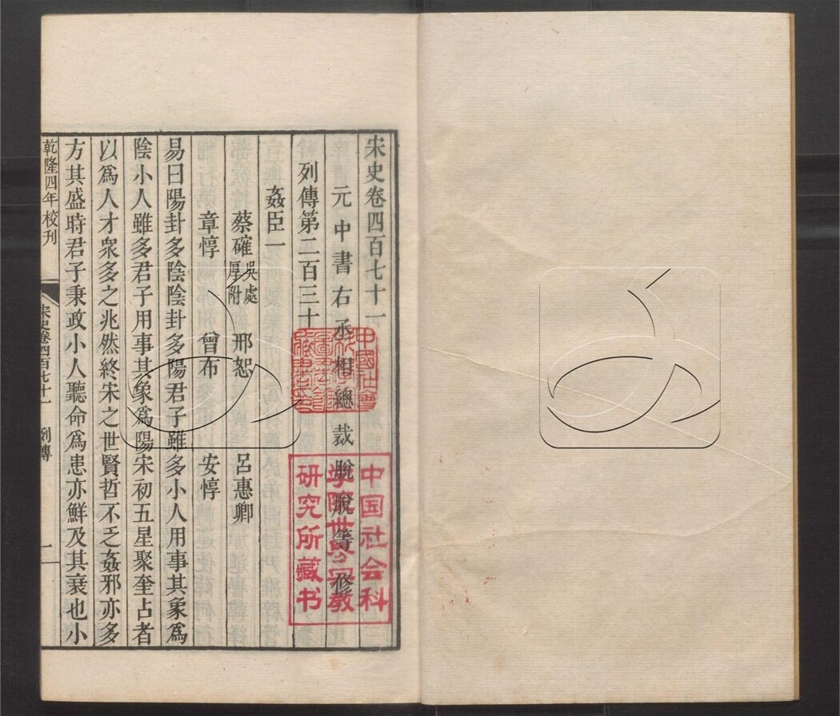 宋史卷四百七十一
元中書右丞相總裁脫脫等修
列傳第二百三十
姦臣一
蔡確吳處厚附 邢恕 呂惠卿
章惇 曾布 安惇
易曰陽卦多陰陰卦多陽君子雖多小人用事其象爲
陰小人雖多君子用事其象爲陽宋初五星聚奎占者
以爲人才衆多之兆然終宋之世賢哲不乏姦邪亦多
方其盛時君子秉政小人聽命爲患亦鮮及其衰也小
乾隆四年校刊
宋史卷四百七十一 列傳 一
中国社会科
学院世界宗教
研究所藏书